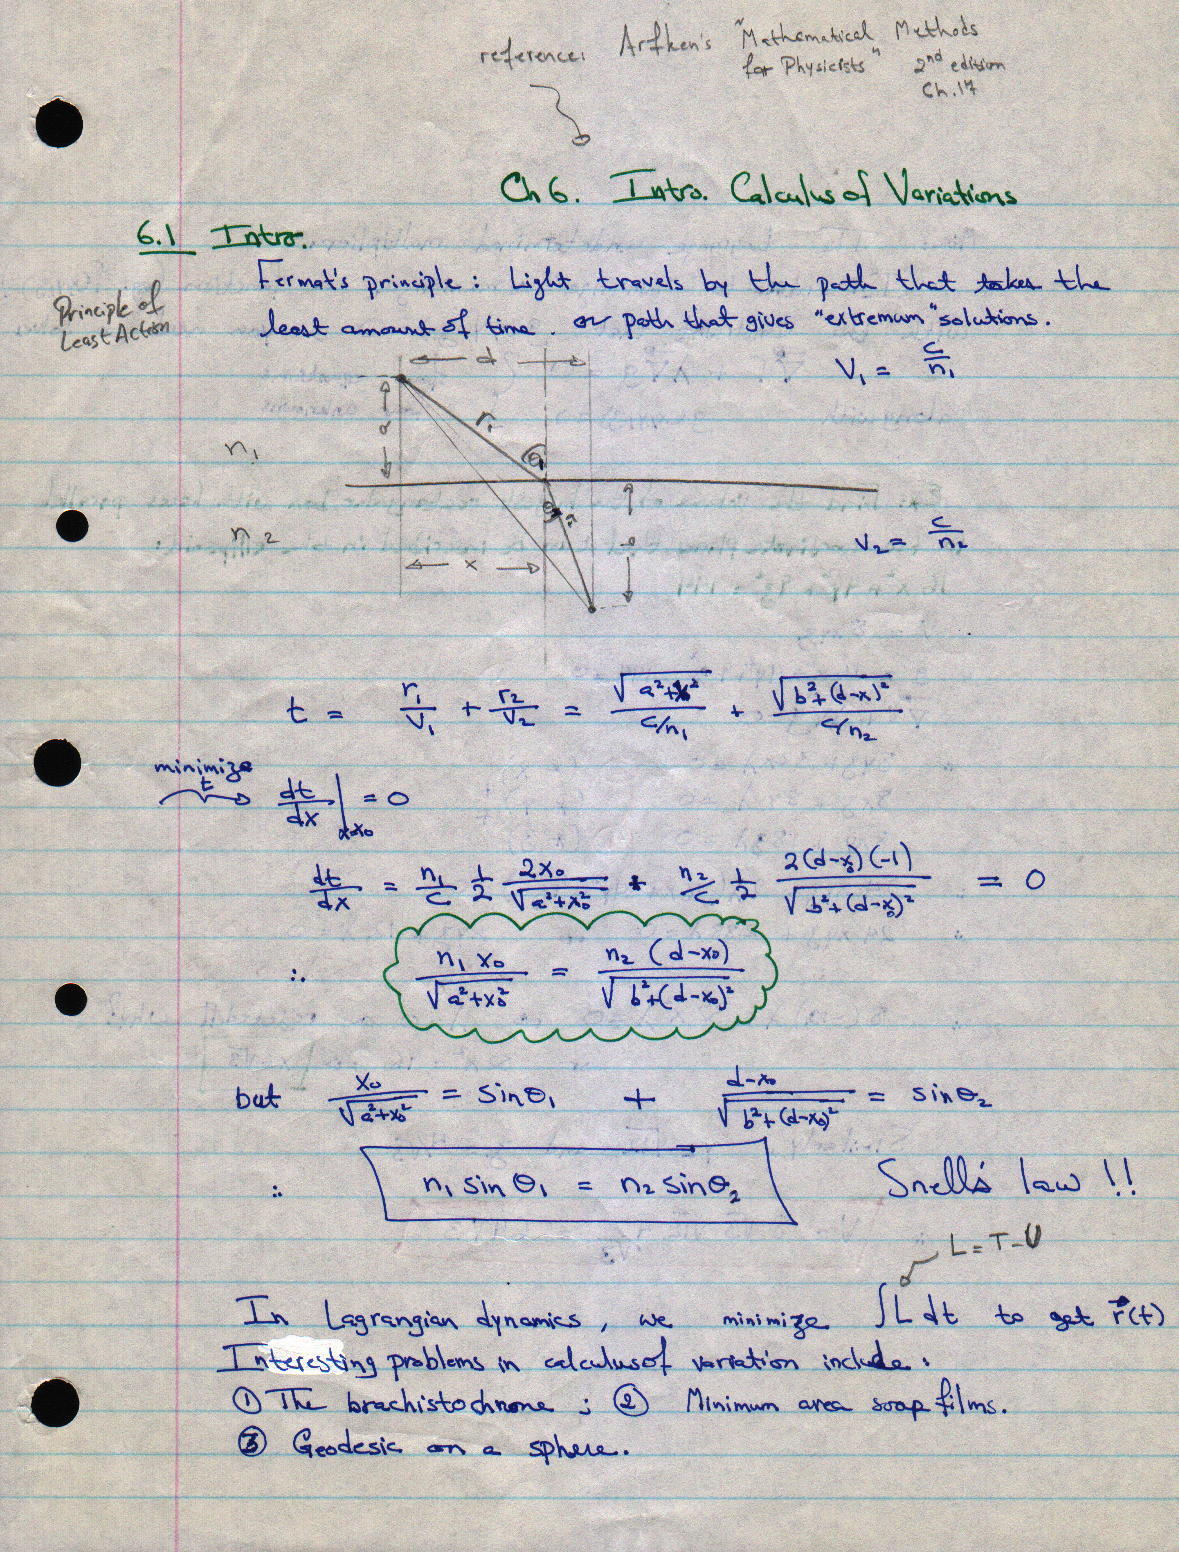 reference: Arfken's "Mathematical Methods
for Physicists" 2nd edition
Ch.17
Ch 6. Intro. Calculus of Variations
6.1 Intro.
Fermat's principle: Light travels by the path that takes the
Principle of
Least Action
least amount of time. or path that gives "extremum" solutions.
d
V₁ = c/n₁
a
r₁
θ₁
n₁
n₂
θ₂
r₂
b
x
V₂ = c/n₂
t = r₁/V₁ + r₂/V₂ = √(a²+x²)/(c/n₁) + √(b²+(d-x)²)/(c/n₂)
minimize
t
dt/dx |x=x₀ = 0
dt/dx = n₁/c 1/2 2x₀/√(a²+x₀²) + n₂/c 1/2 2(d-x₀)(-1)/√(b²+(d-x₀)²) = 0
∴ n₁ x₀/√(a²+x₀²) = n₂ (d-x₀)/√(b²+(d-x₀)²)
but x₀/√(a²+x₀²) = sinθ₁ + d-x₀/√(b²+(d-x₀)²) = sinθ₂
∴ n₁ sin θ₁ = n₂ sinθ₂ Snell's law !!
L = T-U
In Lagrangian dynamics, we minimize ∫L dt to get r⃗(t)
Interesting problems in calculus of variation include:
① The brachistochrone ; ② Minimum area soap films.
③ Geodesic on a sphere.